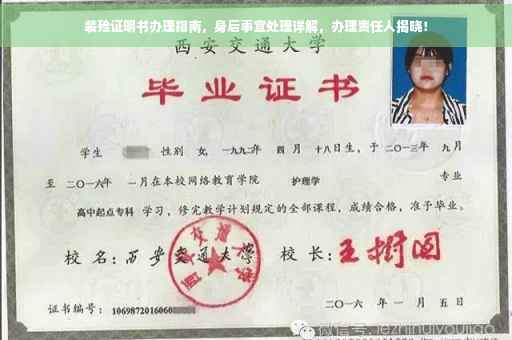 装殓证明书办理指南，身后事宜处理详解，办理责任人揭晓！
西安交通大学
毕业证书
学生 性别 女，一九九二年 四 月 十八日生，于 二〇一三年 九月
至 二〇一六年 一月在本校网络教育学院 护理学 专业
高中起点专科 学习，修完教学计划规定的全部课程，成绩合格，准予毕业。
校 名：西安交通大学 校 长：王树国
西安交通大学
证书编号：1069872016060
二〇一六 年 一 月 五 日
微信号: jezhinuiyoujiao